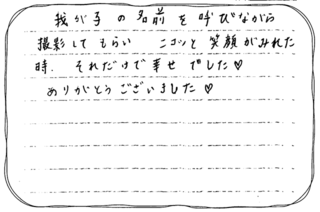 我が子の名前を呼びながら
撮影してもらい ニコッと笑顔がみれた
時、それだけで幸せでした♡
ありがとうございました♡